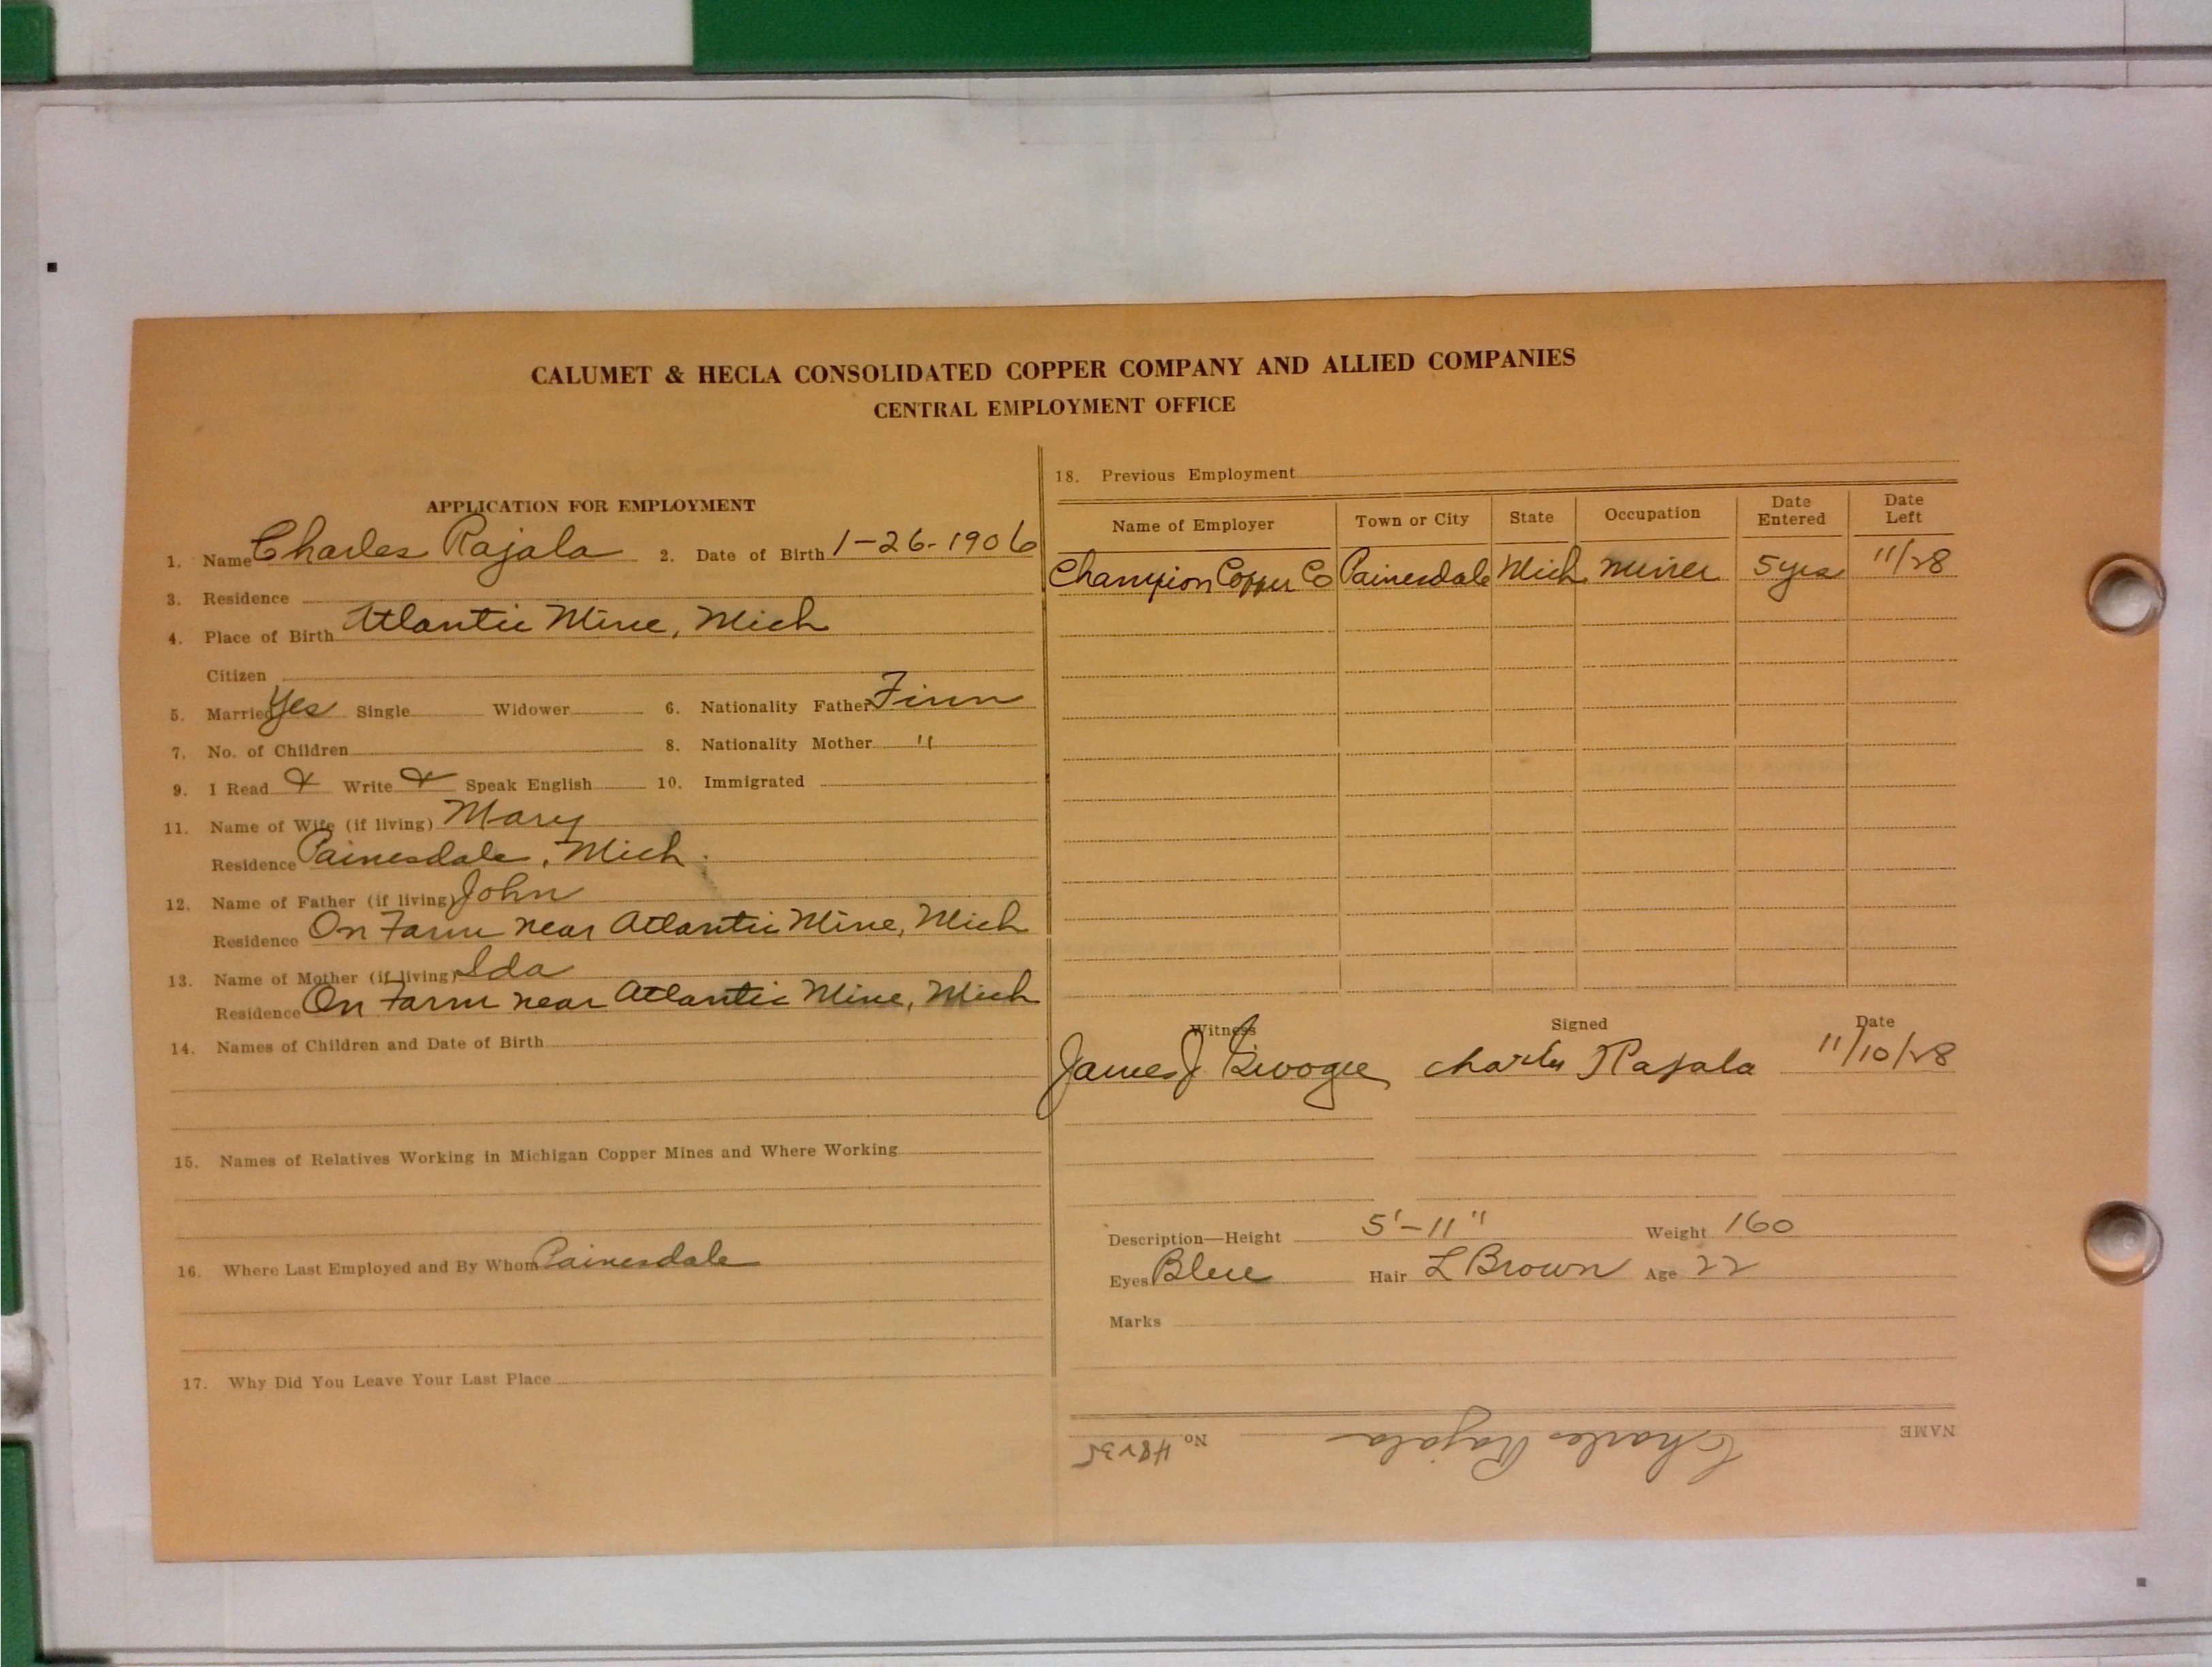 CALUMET & HECLA CONSOLIDATED COPPER COMPANY AND ALLIED COMPANIES
CENTRAL EMPLOYMENT OFFICE
APPLICATION FOR EMPLOYMENT
1. Name Charles Rajala 2. Date of Birth 1-26-1906
3. Residence
4. Place of Birth Atlantic Mine, Mich
Citizen
5. Married Yes Single Widower 6. Nationality Father Finn
7. No. of Children 8. Nationality Mother "
9. I Read & Write & Speak English 10. Immigrated
11. Name of Wife (if living) Mary
Residence Painesdale, Mich.
12. Name of Father (if living) John
Residence On Farm near Atlantic Mine, Mich
13. Name of Mother (if living) Ida
Residence On Farm near Atlantic Mine, Mich
14. Names of Children and Date of Birth
15. Names of Relatives Working in Michigan Copper Mines and Where Working
16. Where Last Employed and By Whom Painesdale
17. Why Did You Leave Your Last Place
18. Previous Employment
Name of Employer Town or City State Occupation Date Entered Date Left
Champion Copper Co Painesdale Mich Miner 5 yrs 11/28
Witness Signed Date
James J Charles Rajala 11/10/28
Description—Height 5'-11" Weight 160
Eyes Blue Hair L Brown Age 22
Marks
NAME Charles Rajala No. 48235